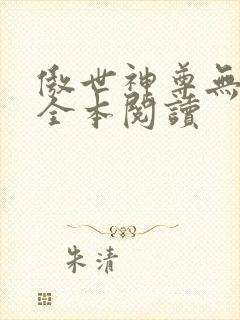 傲世神尊無
全本閱讀
朱清